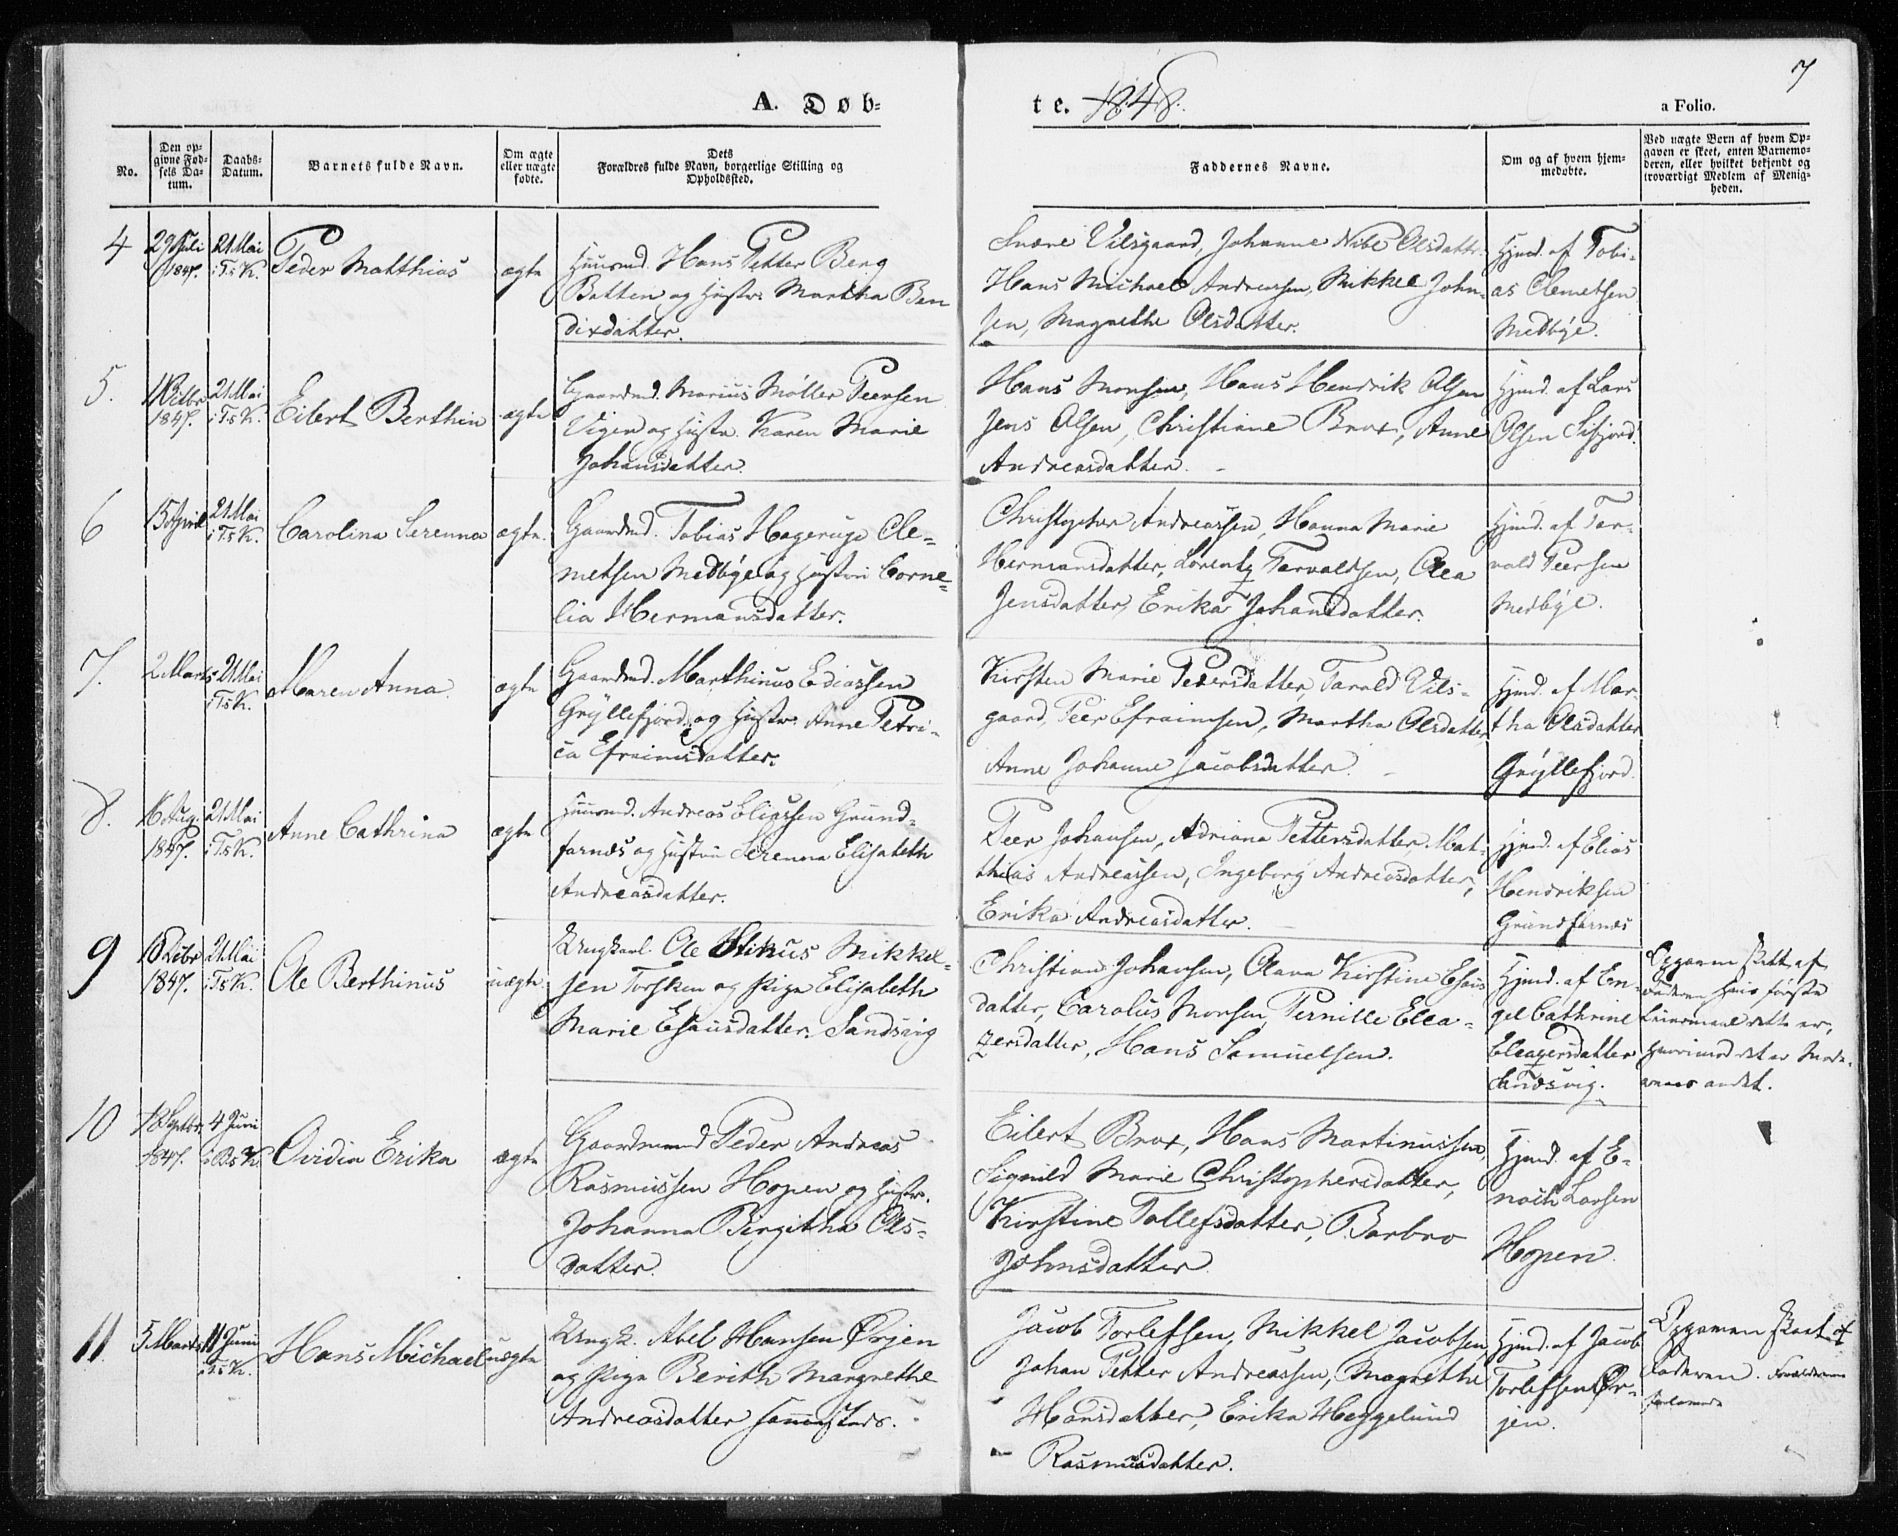 7
A. Døb=
te. 1848.
a Folio.
No.
Den op=
givne Fød=
sels Da=
tum.
Daabs=
Datum.
Barnets fulde Navn.
Om ægte
eller uægte
fødte.
Dets
Forældres fulde Navn, borgerlige Stilling og
Opholdssted.
Faddernes Navne.
Om og af hvem hjem=
medøbte.
Ved uægte Børn af hvem Op=
gaven er skeet, enten Barnemo=
deren, eller hvilket bekjendt og
troværdigt Medlem af Menig=
heden.
4
29 Juli
1847.
21 Mai
i Ts K.
Peder Matthias
ægte
Huusmd. Hans Petter Berg
Botten og Hustr. Martha Ben
dixdatter.
Vilsgaard, Johanna Nibe Olsdatter
Hans Michael Andreassen, Mikkel John=
sen, Magrethe Olsdatter.
Hjmd. af Tobi=
as Clemetsen
Medbye.
5.
1847.
21 Mai
i Ts K.
Eilert Berthin
ægte
Gaardmd. Marius Møller Peersen
Vigen og Hustr. Karen Marie
Johansdatter.
Hans Monsen, Hans Hendrik Olsen
Jens Olsen, Christiane Brox, Anne
Andreasdatter.
Hjmd. af Lars
Olsen Sifjord.
6
15 April
21 Mai
i Ts K.
Carolina Serenna
ægte.
Gaardmd. Tobias Hagerup Cle=
metsen Medbye og Hustru Corne=
lia Hermansdatter.
Christopher Andreassen, Hanna Marie
Hermansdatter, Lorentz Tarvaldsen, Olea
Jensdatter, Erika Johansdatter.
Hjmd. af Tar=
vald Peersen
Medbye.
7.
2 Marts
21 Mai
i Ts K.
Maren Anna
ægte
Gaardmd. Marthinus Ediassen
Gryllefjord og Hustr. Anne Petri=
ca Efraimsdatter.
Kirsten Marie Pedersdatter, Tarald Vils=
gaard, Peer Efraimsen, Martha Olsdatter,
Anne Johanne Jacobsdatter.
Hjmd. af Mar=
tha Olsdatter
Gryllefjord.
8.
16 Aug.
1847.
21 Mai
i Ts K.
Anne Cathrina
ægte
Huusmd. Andreas Eliassen Grund=
farnes og Hustru Serenna Elisabeth
Andreasdatter.
Peer Johansen, Adriana Pettersdatter, Mat=
thias Andreassen, Ingeborg Andreasdatter,
Erika Andreasdatter.
Hjmd. af Elias
Hendriksen
Grundfarnes
9
1847.
21 Mai
i Ts K.
Ole Berthinus
uægte
Ungkarl. Ole Mikkel=
sen Torsken og Pige Elisabeth
Marie Esausdatter. Sandsvig
Christian Johansen, Olava Kirstine Esaus
datter, Carolus Monsen, Pernille Elea=
zersdatter, Hans Samuelsen.
Hjmd. af En=
gel Cathrine
Eleazersdatter
Sandsvig.
Opgaven skett af
Faderen hvis første
Leiermaal dette er,
hvorimod det er Mode=
rens andet.
10
18 Septbr.
1847.
4 Juni
i Bs K.
Ovidia Erika
ægte
Gaardmand Peder Andreas
Rasmussen Hopen og Hustr.
Johanna Birgitha Ols=
datter.
Eilert Brox, Hans Martinussen,
Signild Marie Christophersdatter,
Kirstine Tollefsdatter, Barbro
Johnsdatter
Hjmd. af E=
noch Larsen
Hopen.
11.
5 Marts
11 Juni
i Ts K.
Hans Michael
uægte
Ungk. Abel Hansen Ørjen
og Pige Berith Margrethe
Andreasdatter sammesteds.
Jacob Torlefsen, Mikkel Jacobsen
Johan Petter Andreassen, Magrethe
Hansdatter, Erika Heggelund
Rasmusdatter.
Hjmd. af Jacob
Torlefsen Ør=
jen.
Opgaven skeet af
Faderen. Forældrerne
forlovede